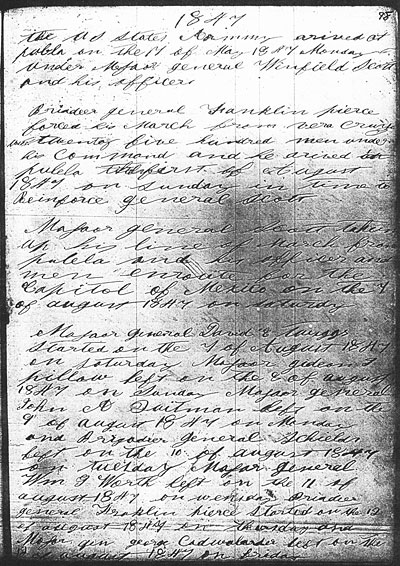 1847
98
the US States Rammy arived at
publa on the 17 of May 1847 Monday
under Major general Winfield Scott
and his officers
Briadeer general Franklin pierce
forced his March from vera Cruz
with twenty five hundred men under
his Command and he arived at
puebla the first of August
1847 on sunday in time to
Reinforce general Scott
Majoor general Scott taken
up his line of March from
puebla and his officer and
men enroute for the
Capitol of Mexico on the 7
of august 1847 on saturday
Majoor general David E twiggs
started on the 7 of August 1847
on saturday Majoor gideon J
pillow left on the 8 of august
1847 on Sunday Majoor general
John A Quitman left on the
9 of august 1847 on Monday
and Brigadier General Schields
left on the 10 of august 1847
on tuesday Major General
Wm J Worth left on the 11 of
august 1847 on wensday Briadeer
general Franklin pierce started on the 12
of august 1847 on thursday and
Major gen george Cadwalader left on the
august 1847 on Friday